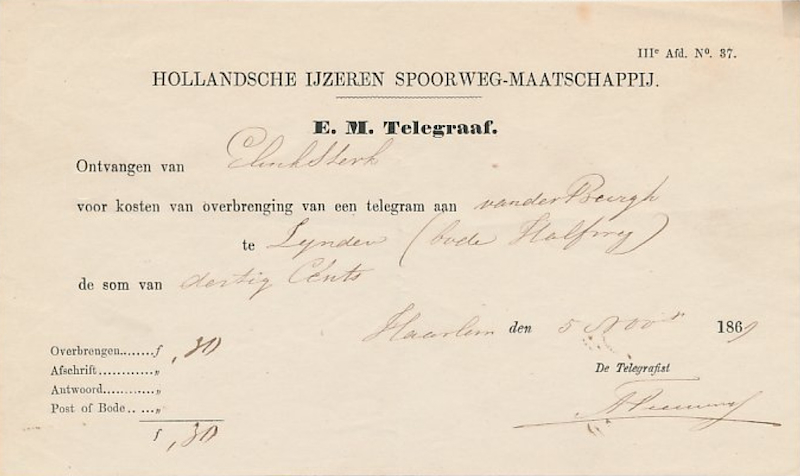 IIIe Afd. No. 37.
HOLLANDSCHE IJZEREN SPOORWEG-MAATSCHAPPIJ.
E. M. Telegraaf.
Ontvangen van Elink Sterk
voor kosten van overbrenging van een telegram aan van der Burgh
te Lynden (bode Halfweg)
de som van dertig Cents
Haarlem den 5 Novr 1869
Overbrengen........f ,30
Afschrift............„
Antwoord...........„
Post of Bode.. ...„
f ,30
De Telegrafist